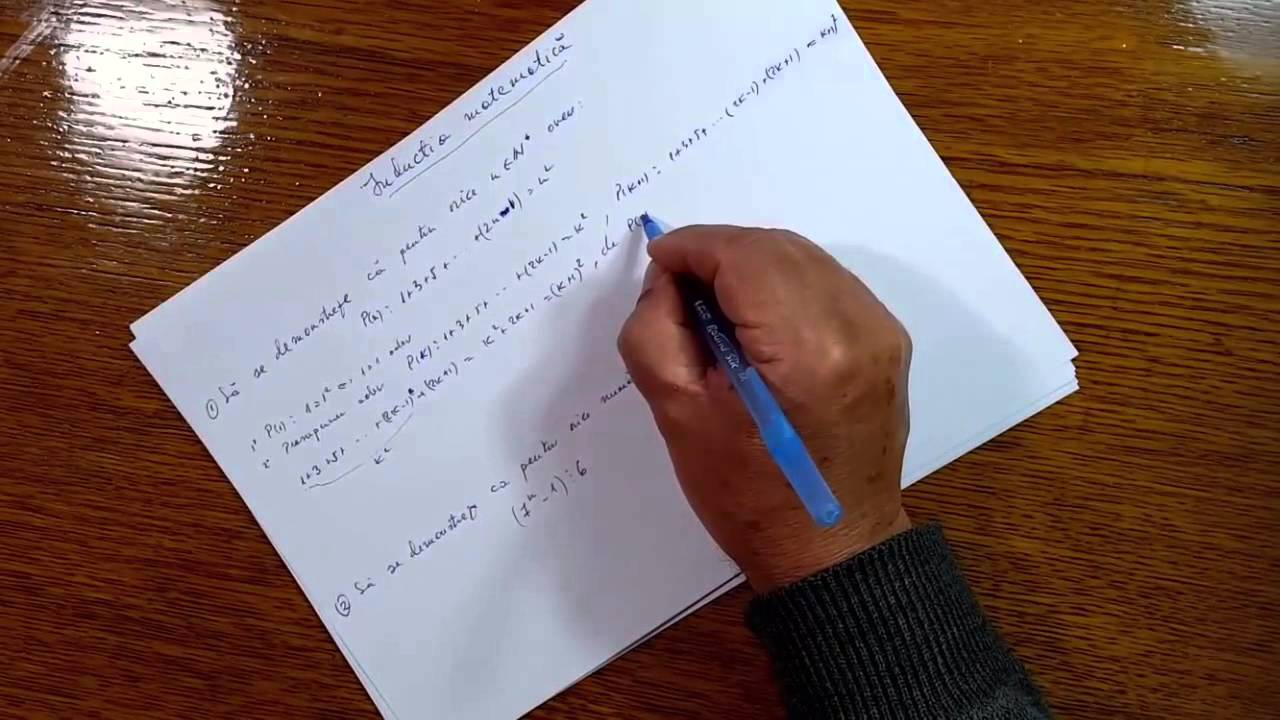 Inducția matematică
① Să se demonstreze că pentru orice n∈N* avem:
P(n): 1+3+5+ ··· +(2n-1) = n²
1° P(1): 1=1² ⇔ 1=1 adev
2° Presupunem adev P(k): 1+3+5+ ··· +(2k-1) = k², P(k+1): 1+3+5+ ··· (2k-1)+(2k+1) = k+1)²
1+3+5+ ··· +(2k-1)+(2k+1) = k²+2k+1 = (k+1)², de P(
k²
② Să se demonstreze că pentru orice
(7ⁿ-1)⋮6